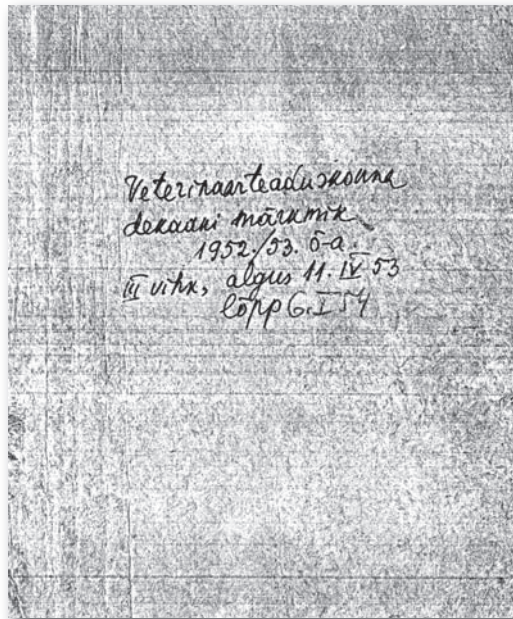 Veterinaarteaduskonna
dekaani märkmik
1952./53. õ-a.
III vihk, algus 11. IV 53
lõpp 6. I 54